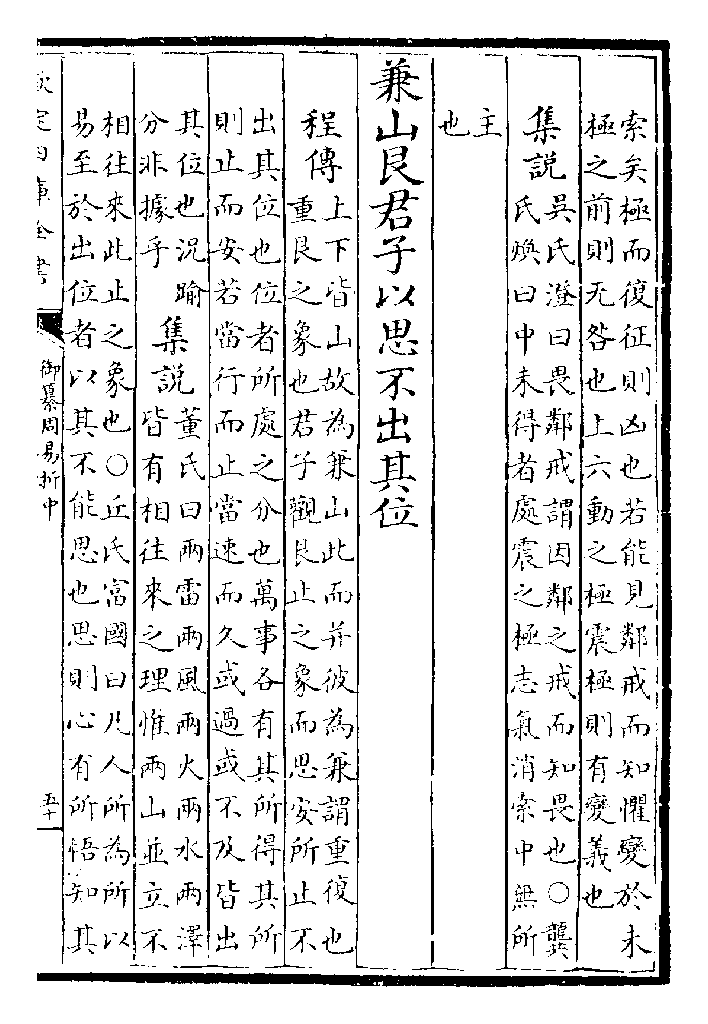 索矣極而復征則凶也若能見鄰戒而知懼變於未
極之前則无咎也上六動之極震極則有變義也
集説
吳氏澄曰畏鄰戒謂因鄰之戒而知畏也○龔
氏煥曰中未得者處震之極志氣消索中無所
主
也
兼山艮君子以思不出其位
程傳
上下皆山故為兼山此而并彼為兼謂重復也
重艮之象也君子觀艮止之象而思安所止不
出其位也位者所處之分也萬事各有其所得其所
則止而安若當行而止當速而久或過或不及皆出
其位也況踰
分非據乎
集説
董氏曰兩雷兩風兩火兩水兩澤
皆有相往來之理惟兩山並立不
相往來此止之象也○丘氏富國曰凡人所為所以
易至於出位者以其不能思也思則心有所悟知其
欽定四庫全書
御纂周易折中
五十